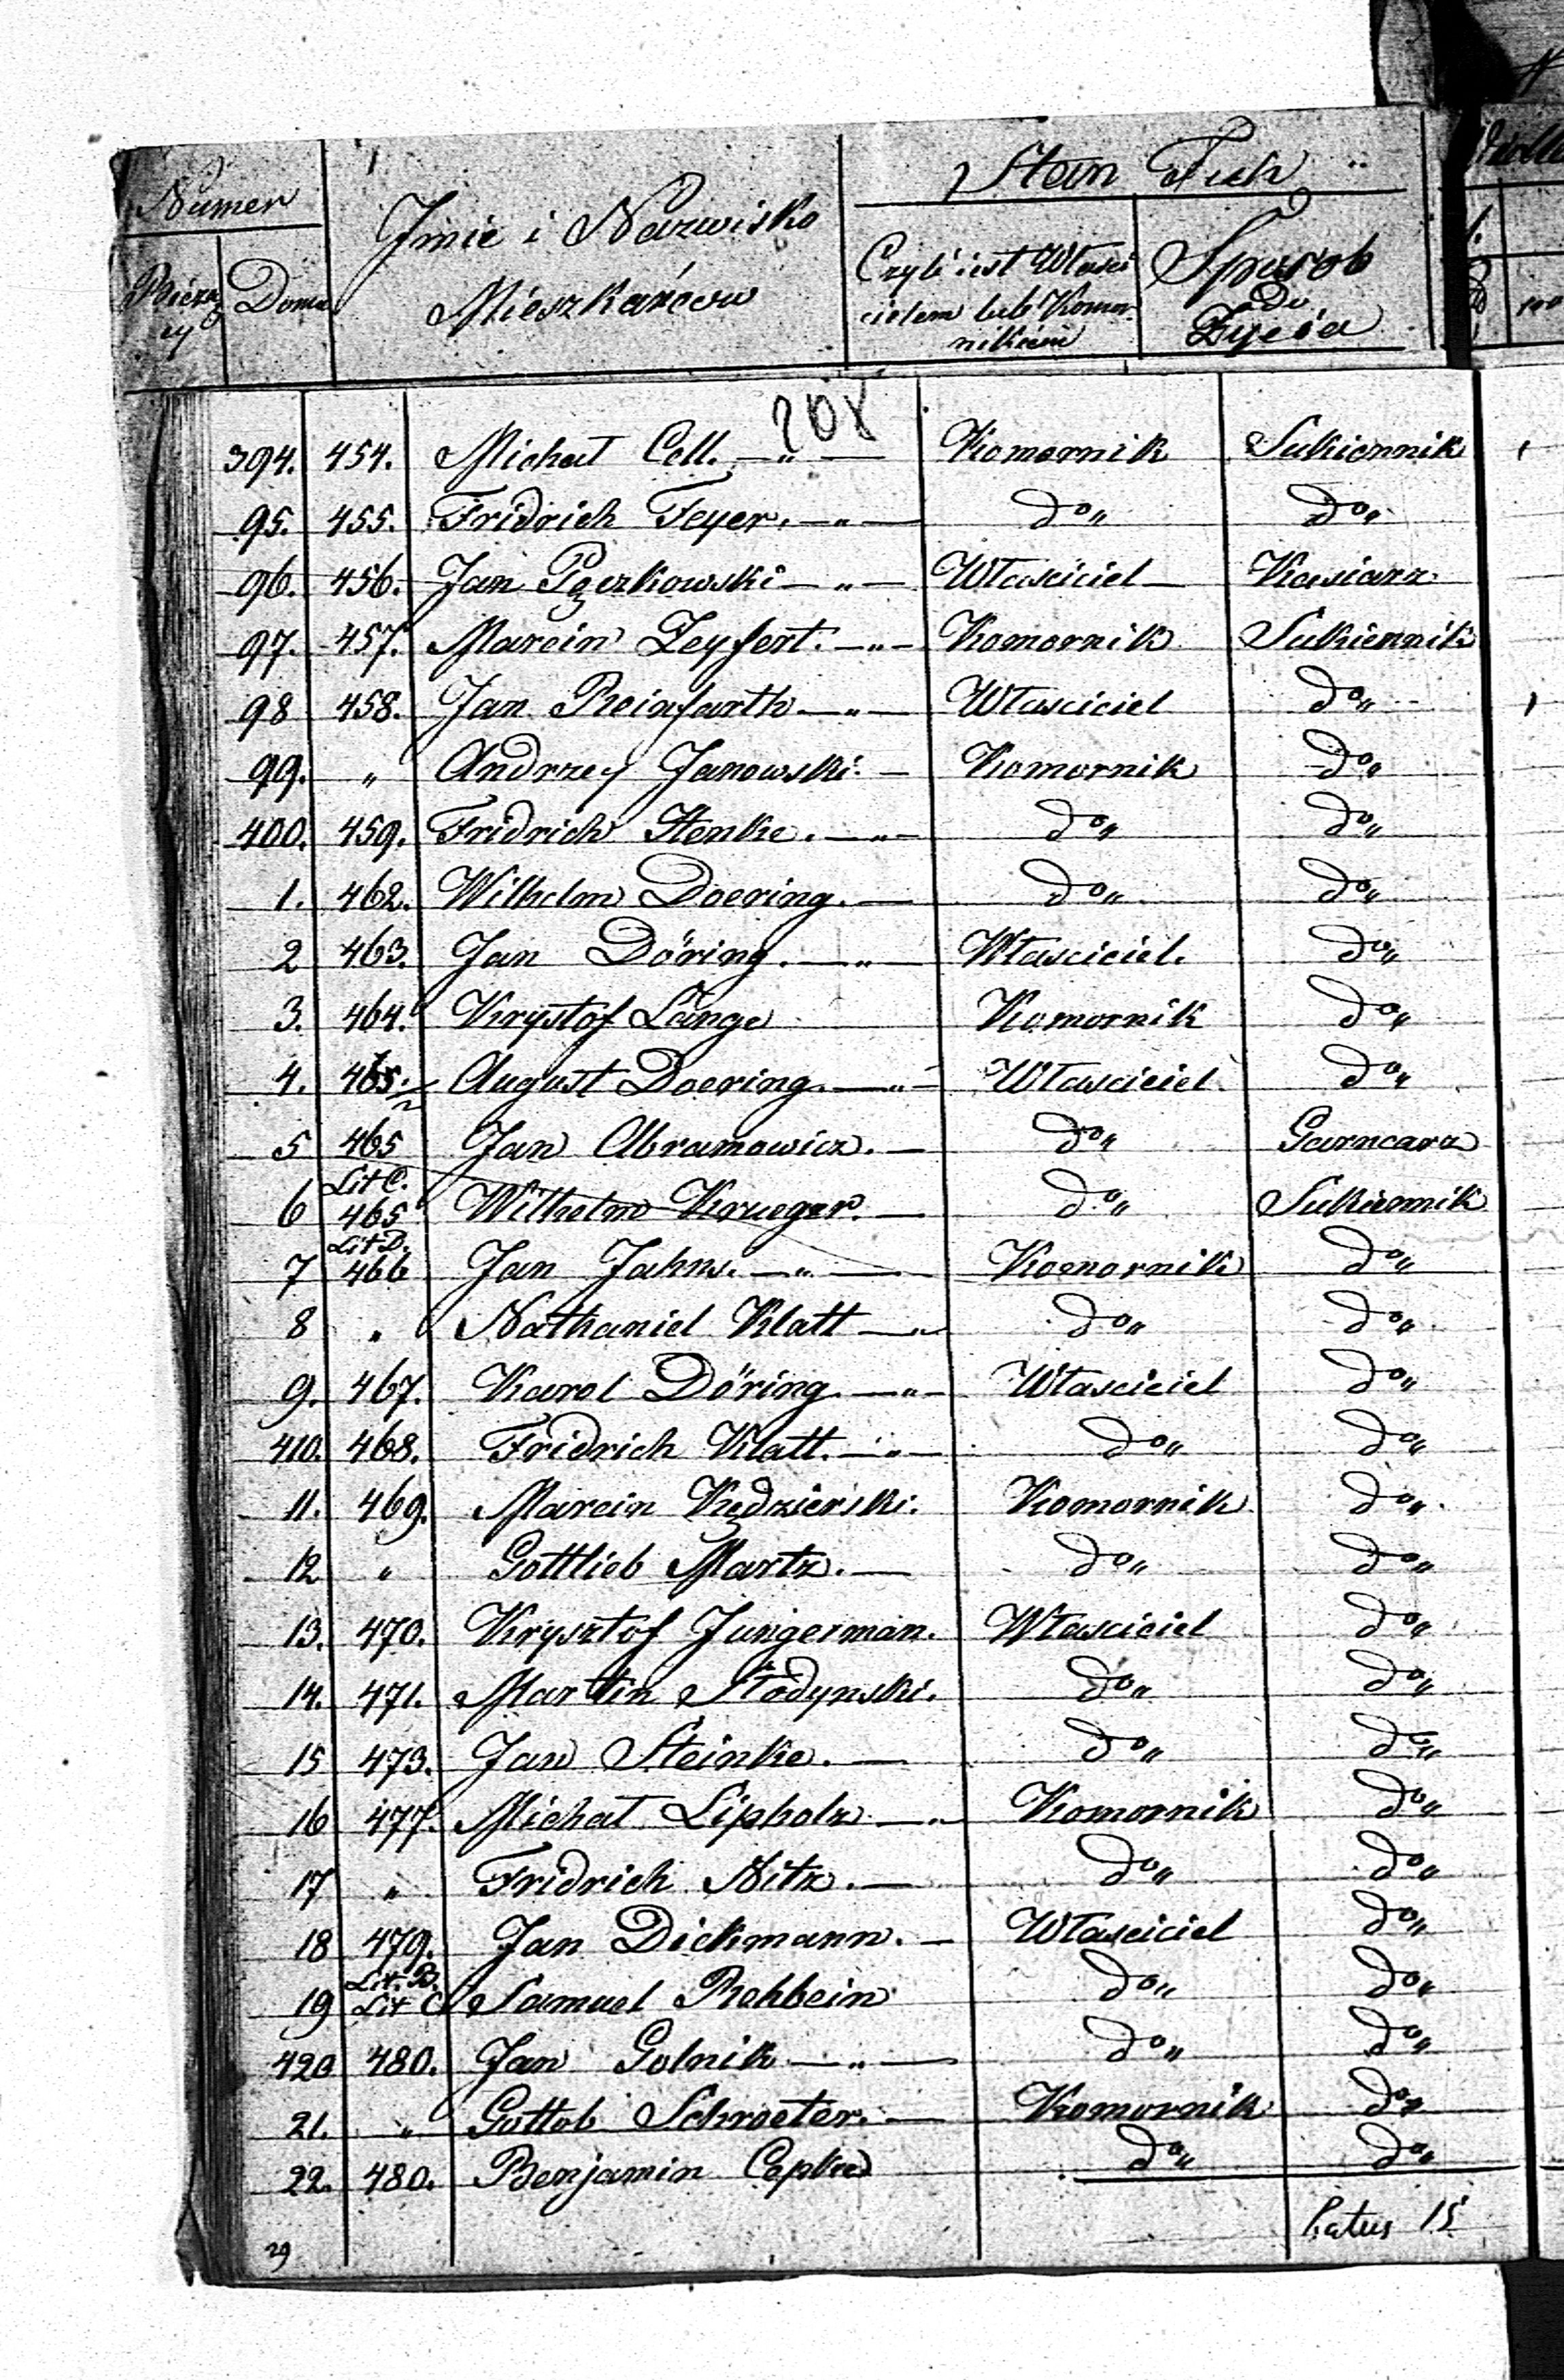 Numer
Stan Tych
Imie i Nazwisko
Mieszkańców
Bieżący
Domu
Czyli iest Właści
cielem lub Komor
nikiem
Sposob
Do
Życia
208
394. 454. Michał Cell. —„— Komornik Sukiennik
95. 455. Fridrich Feyer. —„— do„ do„
96. 456. Jan Pączkowski —„— Właściciel Kasiarz
97. 457. Marcin Zeyfert. —„— Komornik Sukiennik
98 458. Jan Reinfarth —„— Właściciel do„
99. „ Andrzey Janowski. — Komornik do„
400. 459. Fridrich Henke. —„— do„ do„
1. 462. Wilhelm Doering. — do„ do„
2 463. Jan Döring. —„— Właściciel. do„
3. 464. Krystof Lange Komornik do„
4. 465. August Doering. —„— Właściciel do„
5 465 Jan Abramowicz. — do„ Garncarz
Lit C.
6 465 Wilhelm Krueger. — do„ Sukiennik
Lit D.
7 466 Jan Jahns. —„— Komornik do„
8 „ Nathaniel Klatt —„— do„ do„
9. 467. Karol Döring. —„— Właściciel do„
410. 468. Fridrich Klatt. —„— do„ do„
11. 469. Marcin Kędzierski. Komornik do„
12 „ Gottlieb Martz. — do„ do„
13. 470. Krysztof Jungerman. Właściciel do„
14. 471. Martin Słodynski. do„ do„
15 473. Jan Steinke. — do„ do„
16 477. Michał Lipholz —„— Komornik do„
17 „ Fridrich Nitz. — do„ do„
18 479. Jan Dickmann. — Właściciel do„
Lit. B.
19 Lit C Samuel Rehbein do„ do„
420 480. Jan Golnik —„— do„ do„
21. „ Gottlob Schroeter. — Komornik do„
22. 480. Benjamin Cepke do„ do„
Latus 15
29